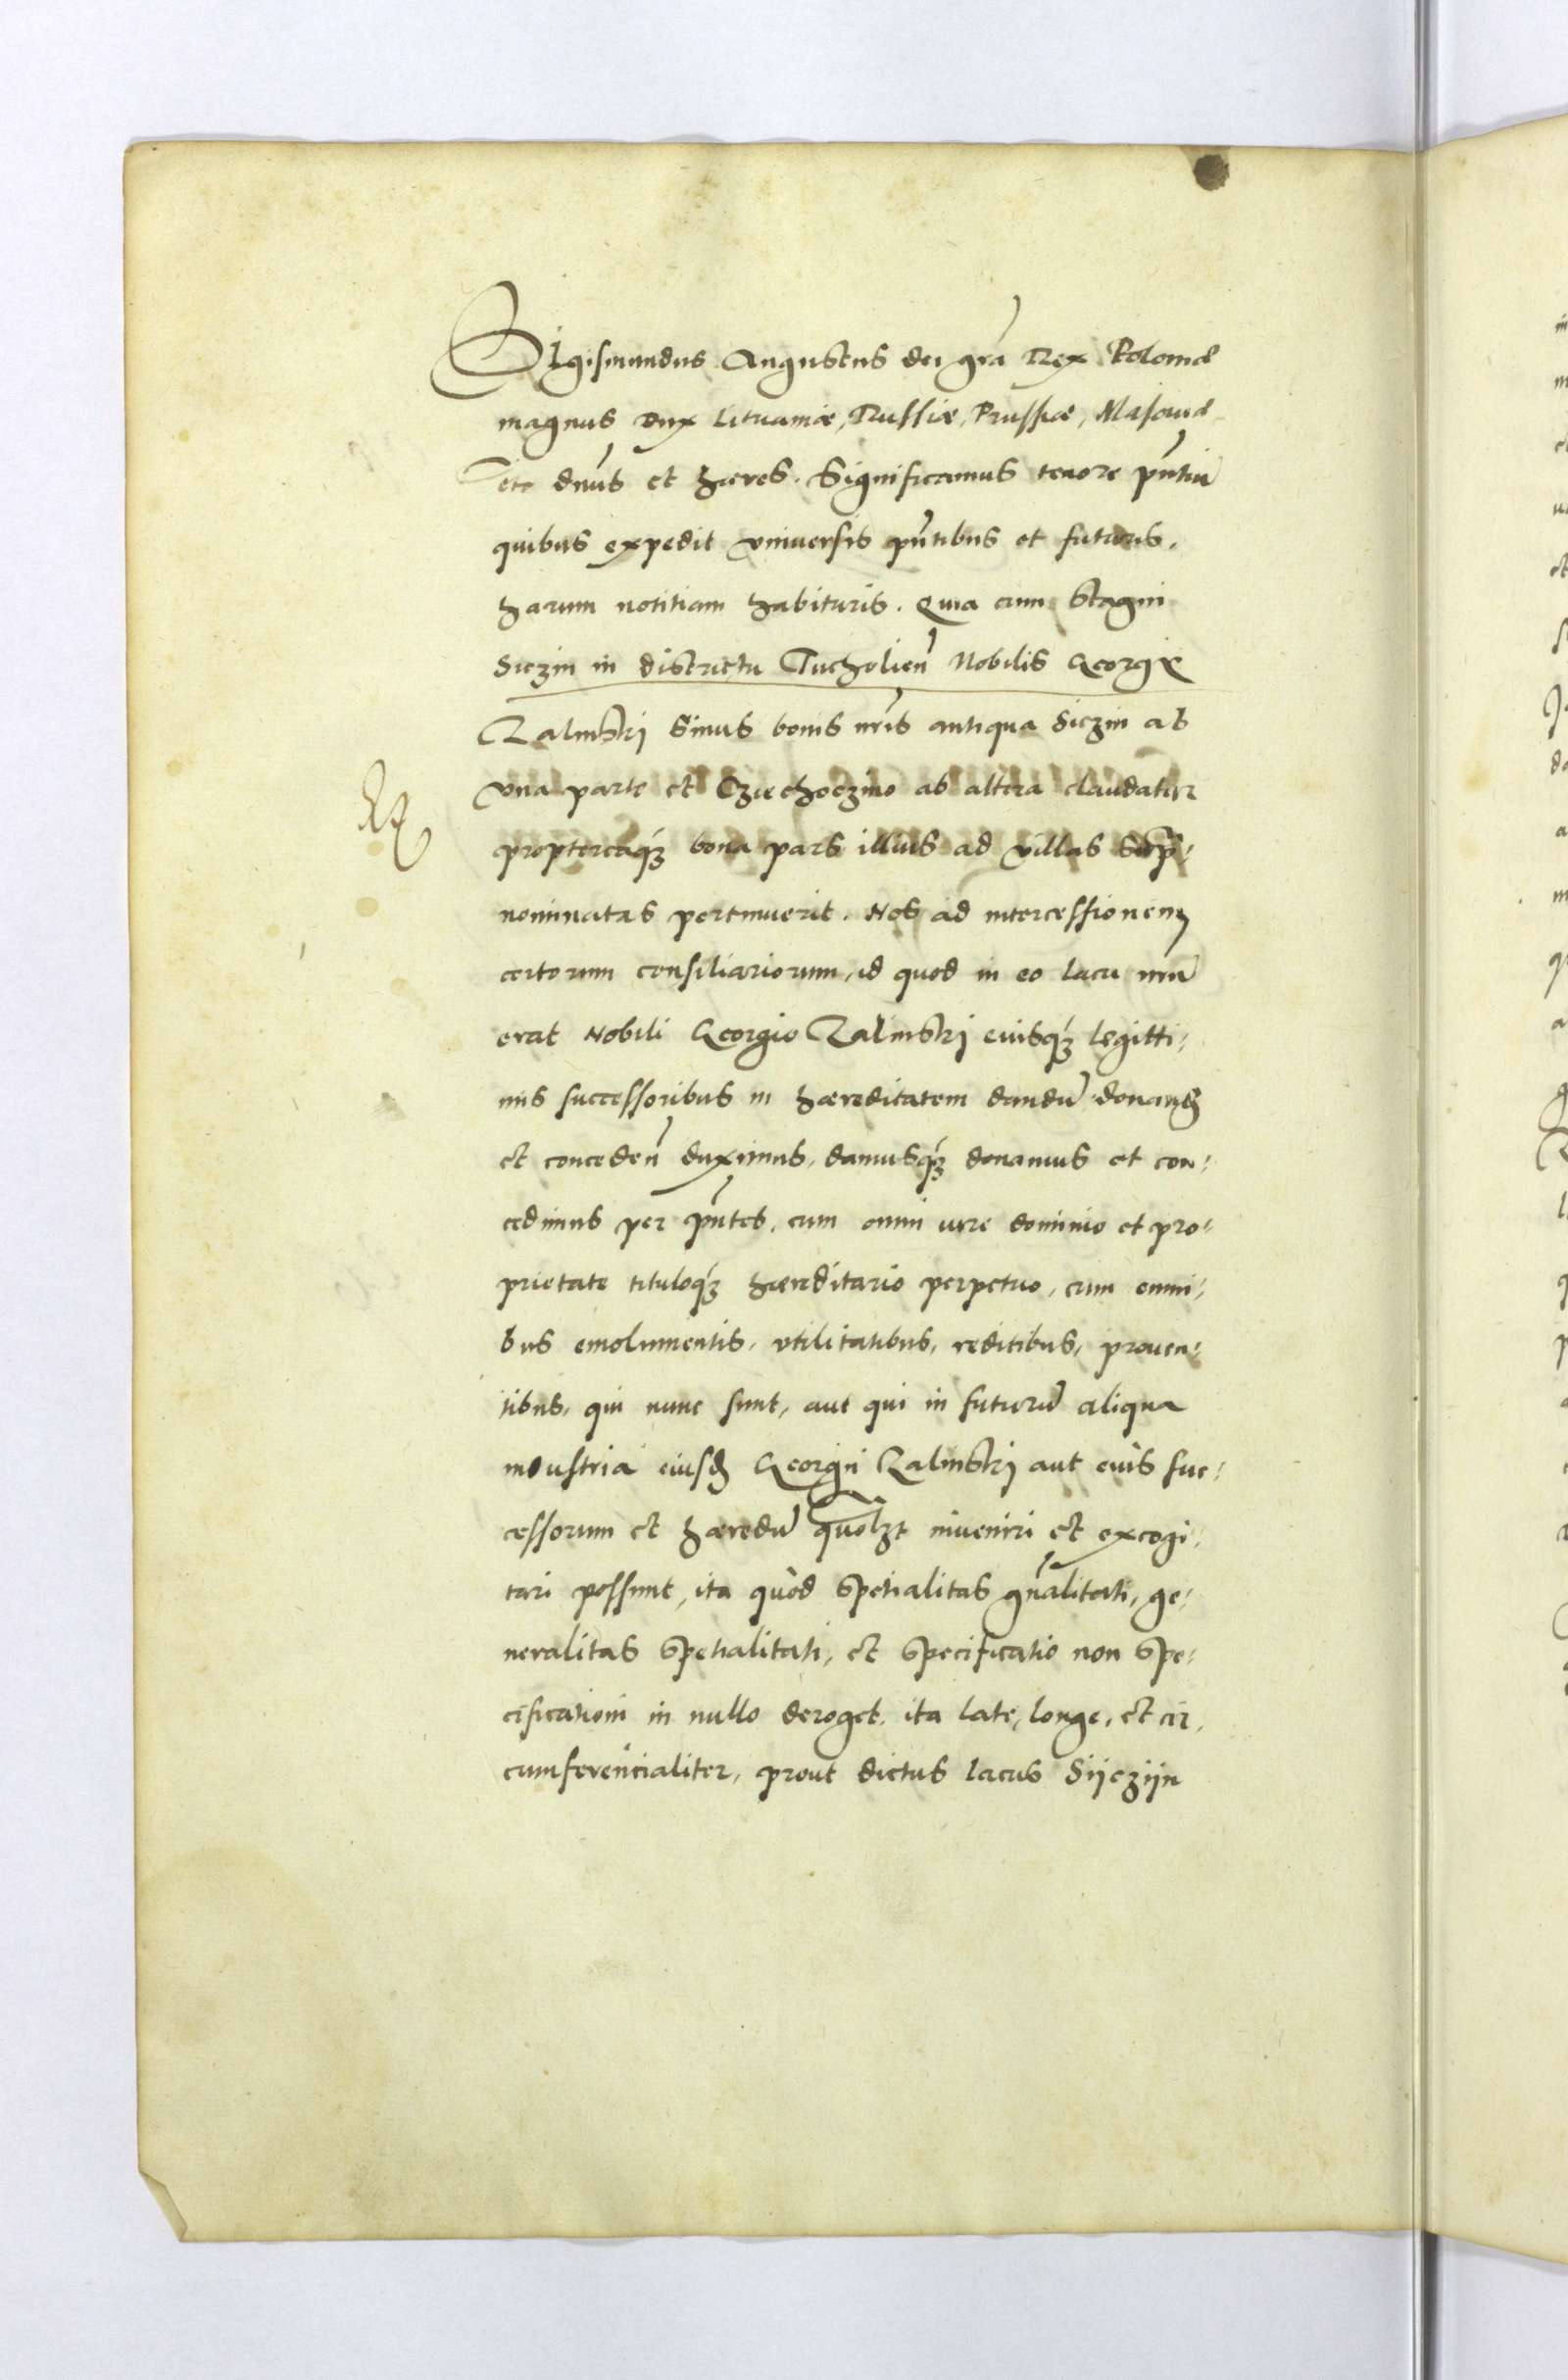 Sigismundus Augustus dei grã Rex Poloniæ
magnus Dux Lituaniæ, Russiæ, Prussiæ, Masouiæ
etc dñus et hæres. Significamus tenore pñtiũ
quibus expedit vniuersis pñtibus et futuris,
harum notitiam habituris. Quia cum Stagni
Siczin in districtu Tucholieñ Nobilis Georgii
Zalinskij Sinus bonis nr̃is antiqua Siczin ab
vna parte et Cziechoczino ab altera claudatur
propterea&#39;q&#39;ꝫ bona pars illius ad villas
nominatas pertinuerit. Nos ad intercessionem
certorum consiliariorum, id quod in eo lacu nr̃ũ
erat Nobili Georgio Zalinskij eiusqꝫ legitti-
mis successoribus in hæreditatem dandũ donand
et concedeñ duximus, damusqꝫ donamus et con-
cedimus per pñtes, cum omni iure dominio et pro-
prietate tituloqꝫ hæreditario perpetuo, cum omni-
bus emolumentis, vtilitatibus, reditibus, prouen-
tibus, qui nunc sunt, aut qui in futurũ aliqua
industria eiusd Georgii Zalinskij aut eius suc-
cessorum et hæredũ quolꝫt inueniri et excogi-
tari possunt, ita quòd spetialitas gñalitati, ge-
neralitas spetialitati, et specificatio non spe-
cificationi in nullo deroget, ita late, longe, et cir-
cumferencialiter, prout dictus lacus Sijczijn